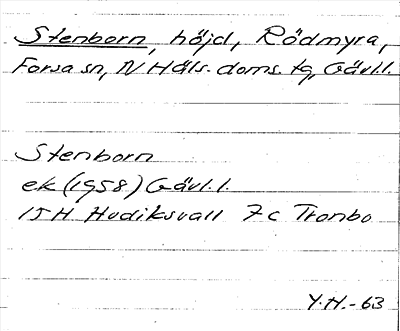 Stenborn, höjd, Rödmyra,
Forsa sn, N Häls. doms. tg, Gävl.l.
Stenborn
ek (1958) Gävl. l.
15H Hudiksvall 7c Trombo
Y.H.-63